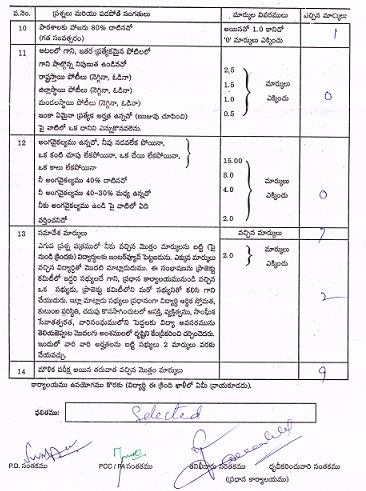 వ.నెం. ప్రశ్నలు మరియు పదపోత సంగతులు మార్కుల వివరములు ఎచ్చిన మార్కులు
10 పాఠశాలకు హాజరు 80% దాటినచో అయినచో 1.0 కానిచో 1
(గత సంవత్సరం) '0' మార్కులు ఎక్కించు
11 ఆటలలో గాని, ఇతర ప్రత్యేకమైన పోటీలలో
గాని పాల్గొన్న నిపుణత ఉండినచో
రాష్ట్రస్థాయి పోటీలు (నెగ్గినా, ఓడినా) 2.5
జిల్లాస్థాయి పోటీలు (నెగ్గినా, ఓడినా) 1.5 మార్కులు 0
మండలస్థాయి పోటీలు (నెగ్గినా, ఓడినా) 1.0 ఎక్కించు
ఇంకా ఏమైనా ప్రత్యేక అర్హత ఉన్నచో (ఋజువు చూపించి) 0.5
పై వాటిలో ఒక దానిని ఎన్నుకొనవలెను.
12 అంగవైకల్యము ఉన్నదో, నీవు నడవలేక పోయినా,
ఒక కంటి చూపు లేకపోయినా, ఒక చేయి లేకపోయినా 15.00
ఒక కాలు లేకపోయినా
నీ అంగవైకల్యము 40% దాటినచో 8.0 మార్కులు
నీ అంగవైకల్యము 40-30% మధ్య ఉన్నచో 4.0 ఎక్కించు 0
నీకు అంగవైకల్యము ఉండి పై వాటిలో ఏది
వర్తించనిచో 2.0
13 సమావేశ మార్కులు వచ్చిన మార్కులు 7
ఎగువ ప్రశ్న పత్రములో నీకు వచ్చిన మొత్తం మార్కులను బట్టి (పై 2.0 మార్కులు
నుండి క్రిందకు) విద్యార్థులకు ఇంటర్వ్యూస్ పెట్టబడును. ఎక్కువ మార్కులు ఎక్కించు
వచ్చిన విద్యార్థితో మొదట మాట్లాడుదుము. ఈ సంభాషణను ప్రాజెక్టు
కమిటీలో ఇద్దరి సభ్యులచే గాని, ప్రధాన కార్యాలయమునుండి వచ్చిన
ఒక సభ్యుడు, ప్రాజెక్టు కమిటీలోని మరో సభ్యునితో కలిసి గాని 2
చేయుదురు. ఇట్లా మాట్లాడు సభ్యులు ప్రధానంగా విద్యార్థి ఆర్థిక స్తోమత,
కుటుంబ పరిస్థితి, చదువు కొనసాగించుటలో ఆసక్తి, వ్యక్తిత్వము, సాంఘీక
సేవాతత్పరత,
ఇందులో వారి వారి అర్హతలను బట్టి సభ్యులు 2 మార్కుల వరకు
వేయవచ్చు.
14 మౌళిక పరీక్ష అయిన తరువాత వచ్చిన మొత్తం మార్కులు 9
కార్యాలయము ఉపయోగము కొరకు (విద్యార్థి ఈ క్రింది ఖాళీలో ఏమీ వ్రాయకూడదు).
ఫలితము: Selected
P.D. సంతకము PCC / PA సంతకము తనిఖీదారు సంతకము ధృవీకరించువారి సంతకము
(ప్రధాన కార్యాలయము)